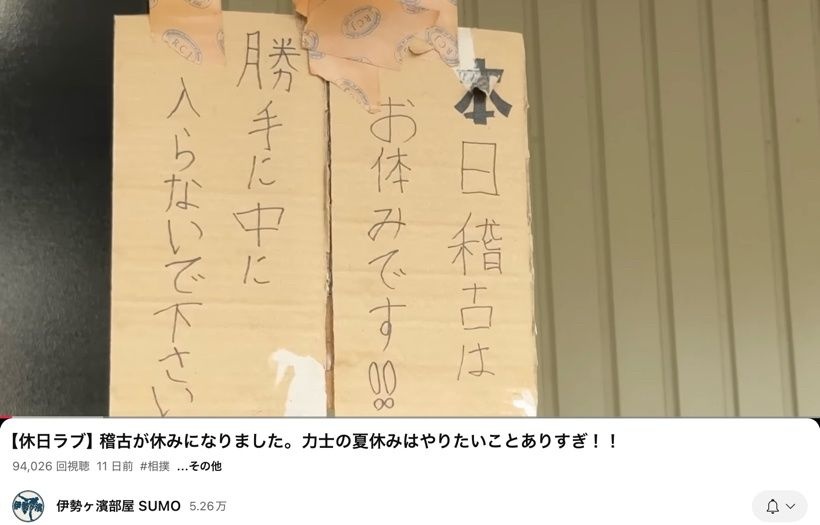 本日稽古は
お休みです!!
勝手に中に
入らないで下さい
RCJ
RCJ
【休日ラブ】稽古が休みになりました。力士の夏休みはやりたいことありすぎ！！
94,026 回視聴 11 日前 #相撲 ...その他
伊勢ヶ濱
伊勢ヶ濱部屋 SUMO 5.26万